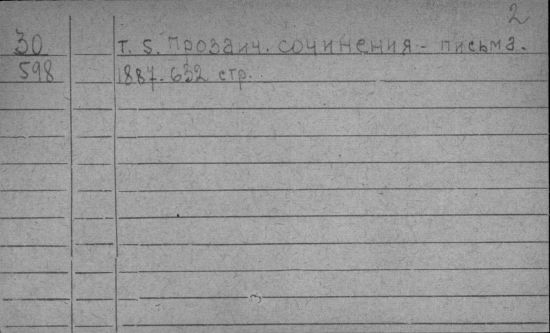 2
30 т. 5. Прозаич. сочинения - письма.
598 1887. 632 стр.